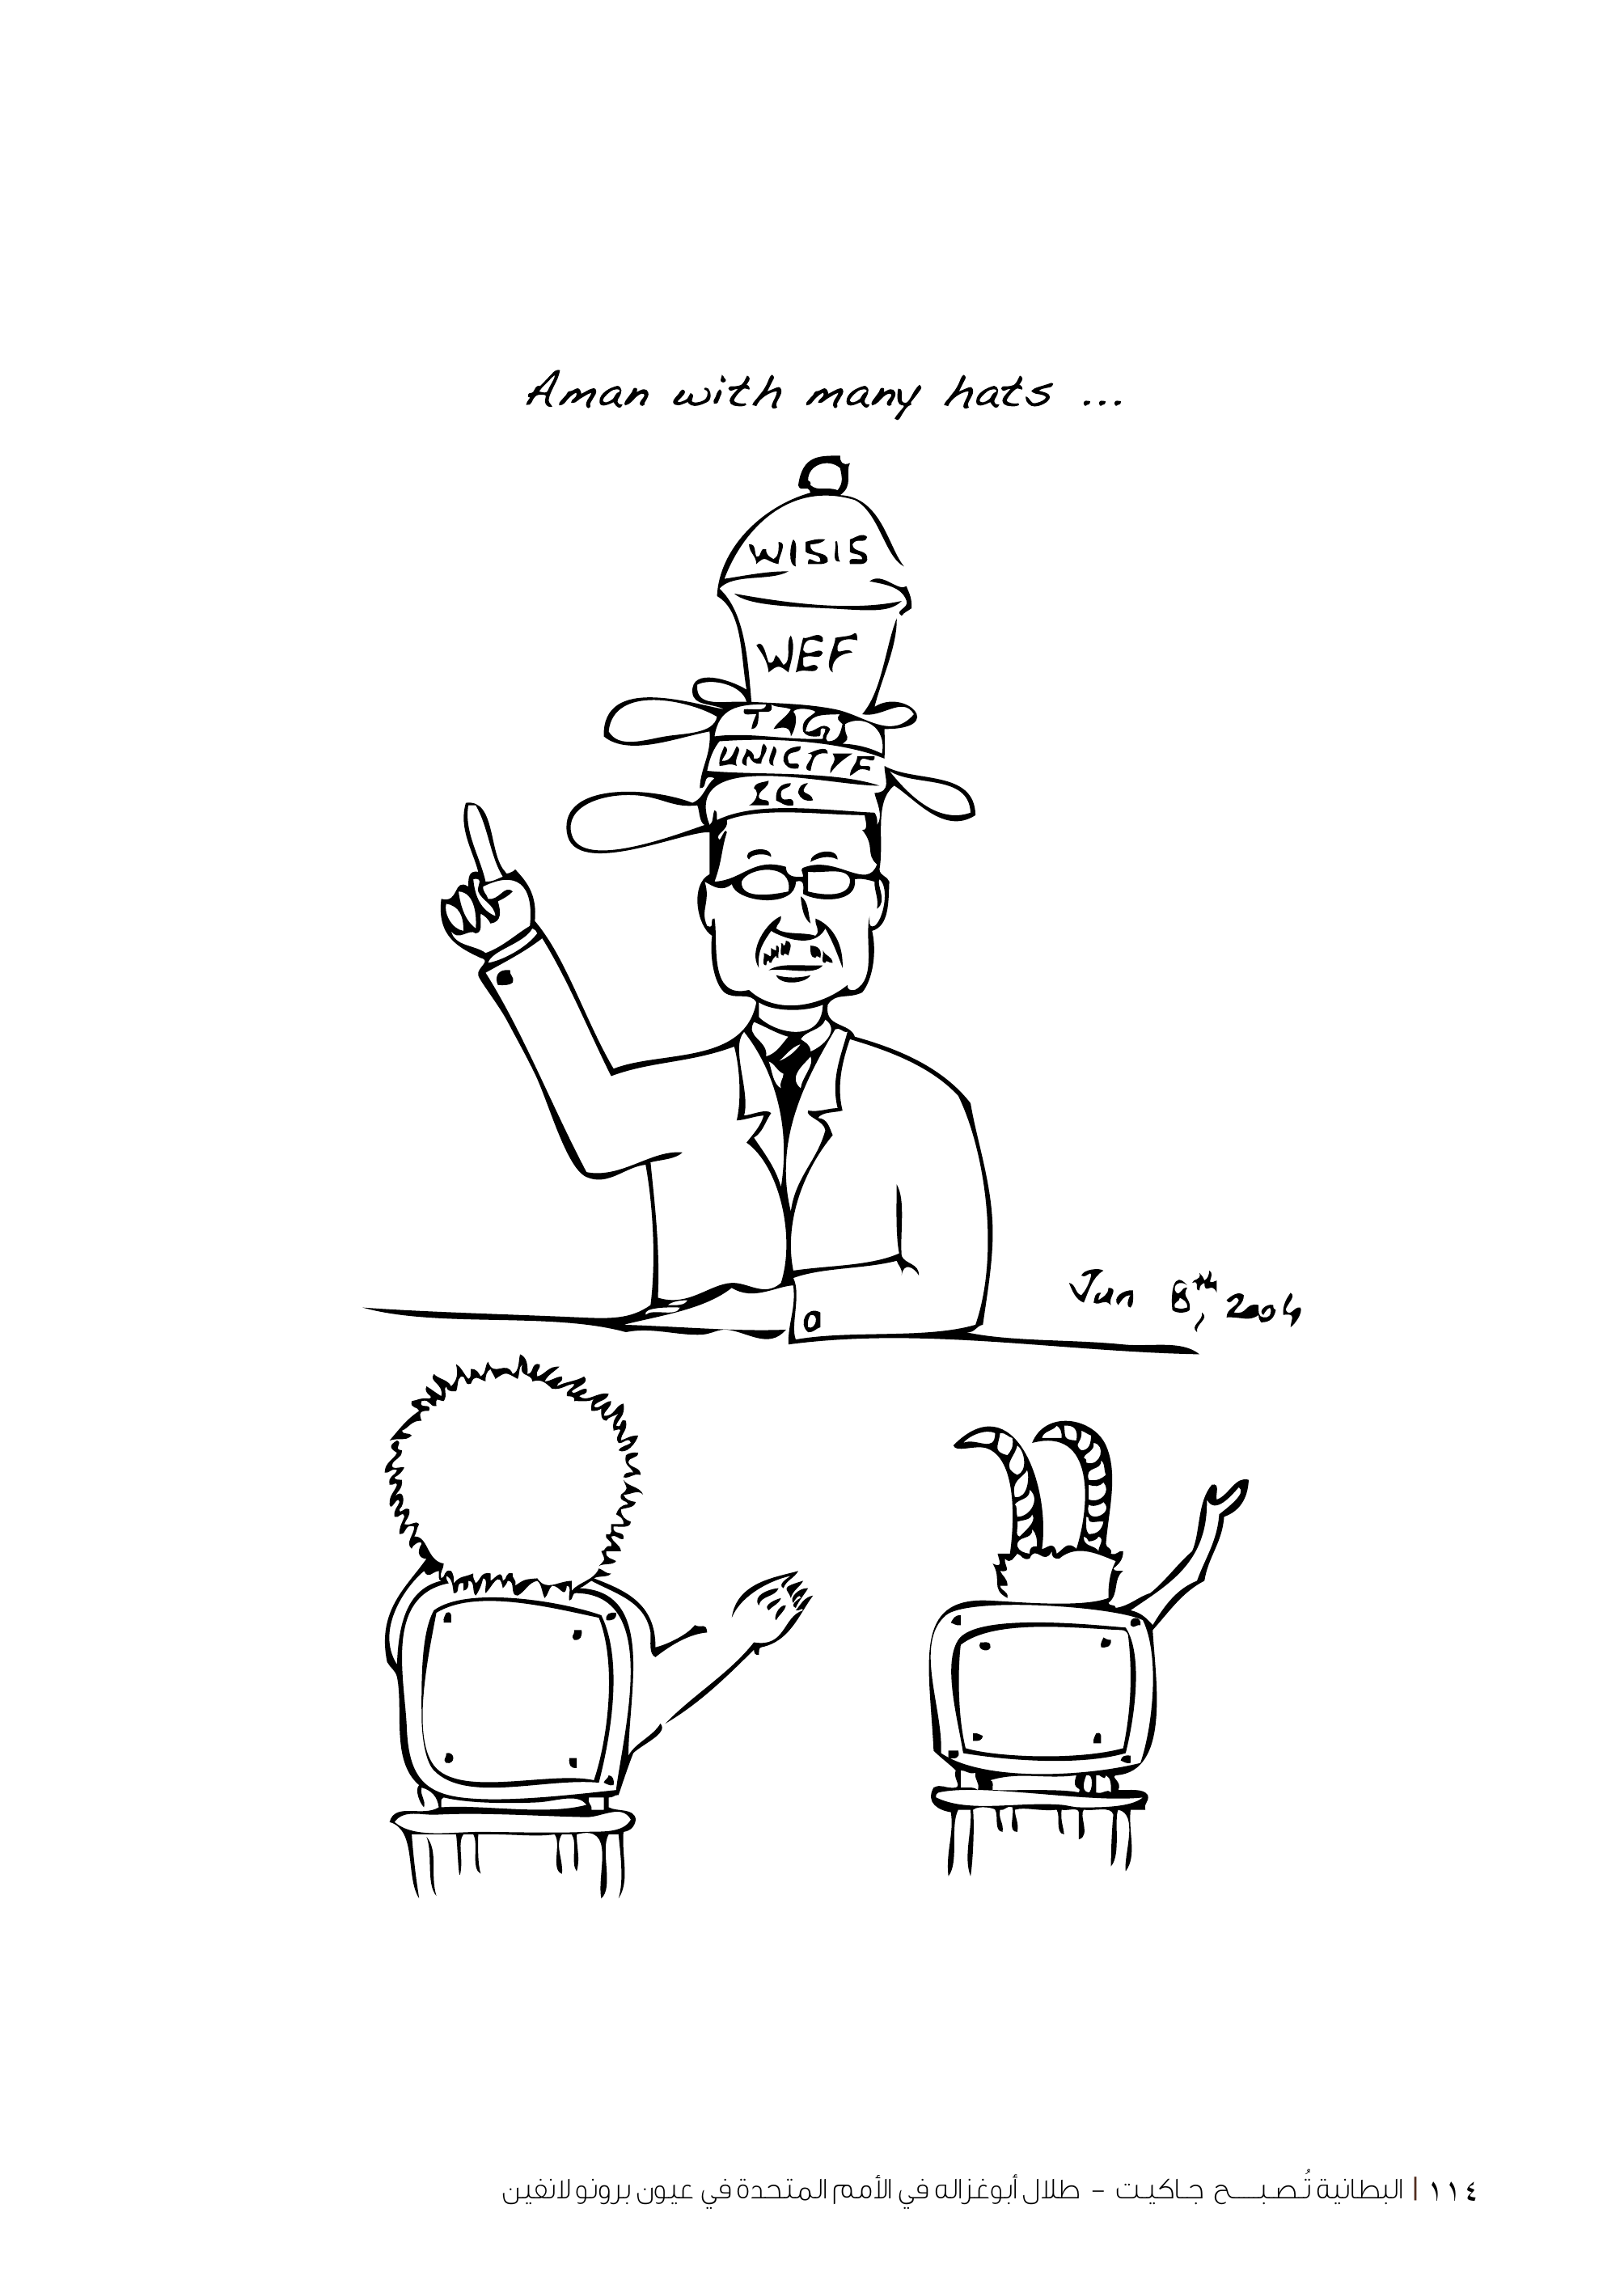 Aman with many hats ...
WISIS
WEF
TAG
UNICTTF
ICC
Jun 8th, 2004
١١٤ | البطانية تُصبح جاكيت - طلال أبوغزاله في الأمم المتحدة في عيون برونو لانفين